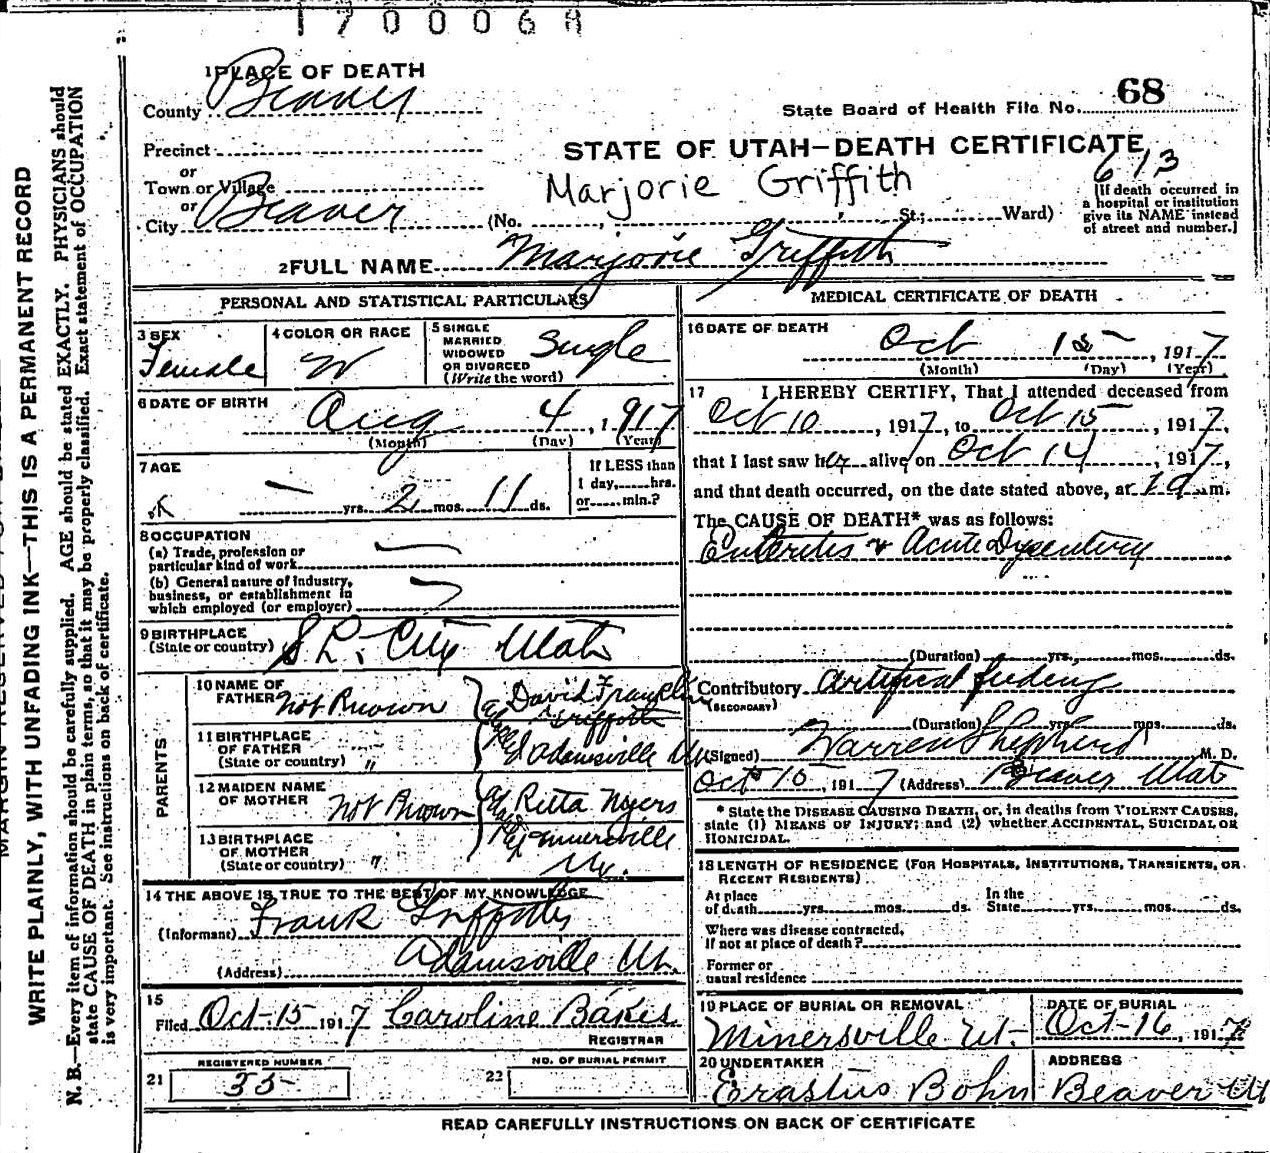 1700068
1 PLACE OF DEATH
County Beaver
State Board of Health File No. 68
Precinct
or
Town or Village
or
City Beaver
STATE OF UTAH—DEATH CERTIFICATE
613
Marjorie Griffith
(No. , St.; Ward)
[If death occurred in
a hospital or institution
give its NAME instead
of street and number.]
2 FULL NAME Marjorie Griffith
PERSONAL AND STATISTICAL PARTICULARS
3 SEX
Female
4 COLOR OR RACE
W
5 SINGLE
MARRIED
WIDOWED
OR DIVORCED
(Write the word)
Single
6 DATE OF BIRTH
Aug 4, 1917
(Month) (Day) (Year)
7 AGE
— yrs. 2 mos. 11 ds.
If LESS than
1 day, hrs.
or min.?
8 OCCUPATION
(a) Trade, profession or
particular kind of work
(b) General nature of industry,
business, or establishment in
which employed (or employer)
9 BIRTHPLACE
(State or country) S L. City Utah
PARENTS
10 NAME OF
FATHER Not Known David Franklin
Griffith
11 BIRTHPLACE
OF FATHER
(State or country) " Adamsville Ut
12 MAIDEN NAME
OF MOTHER Not Known Retta Myers
13 BIRTHPLACE
OF MOTHER
(State or country) " Minersville
Ut.
14 THE ABOVE IS TRUE TO THE BEST OF MY KNOWLEDGE
(Informant) Frank Griffiths
(Address) Adamsville Ut.
15
Filed Oct-15 1917 Caroline Bakes
REGISTRAR
REGISTERED NUMBER
21 35
NO. OF BURIAL PERMIT
22
MEDICAL CERTIFICATE OF DEATH
16 DATE OF DEATH
Oct 15, 1917
(Month) (Day) (Year)
17 I HEREBY CERTIFY, That I attended deceased from
Oct 10, 1917, to Oct 15, 1917,
that I last saw her alive on Oct 14, 1917,
and that death occurred, on the date stated above, at m.
The CAUSE OF DEATH* was as follows:
Enteritis & Acute Dysentery
(Duration) yrs. mos. ds.
Contributory Artificial feeding
(SECONDARY)
(Duration) yrs. mos. ds.
(Signed) Warren Shepherd M. D.
Oct 15, 1917 (Address) Beaver Utah
* State the DISEASE CAUSING DEATH, or, in deaths from VIOLENT CAUSES,
state (1) MEANS OF INJURY; and (2) whether ACCIDENTAL, SUICIDAL OR
HOMICIDAL.
18 LENGTH OF RESIDENCE (FOR HOSPITALS, INSTITUTIONS, TRANSIENTS, OR
RECENT RESIDENTS)
At place
of death yrs. mos. ds.
In the
State yrs. mos. ds.
Where was disease contracted,
if not at place of death?
Former or
usual residence
19 PLACE OF BURIAL OR REMOVAL
Minersville Ut.
DATE OF BURIAL
Oct-16, 1917
20 UNDERTAKER
Erastus Bohn
ADDRESS
Beaver Ut
READ CAREFULLY INSTRUCTIONS ON BACK OF CERTIFICATE
WRITE PLAINLY, WITH UNFADING INK—THIS IS A PERMANENT RECORD
N. B.—Every item of information should be carefully supplied. AGE should be stated EXACTLY. PHYSICIANS should
state CAUSE OF DEATH in plain terms, so that it may be properly classified. Exact statement of OCCUPATION
is very important. See instructions on back of certificate.